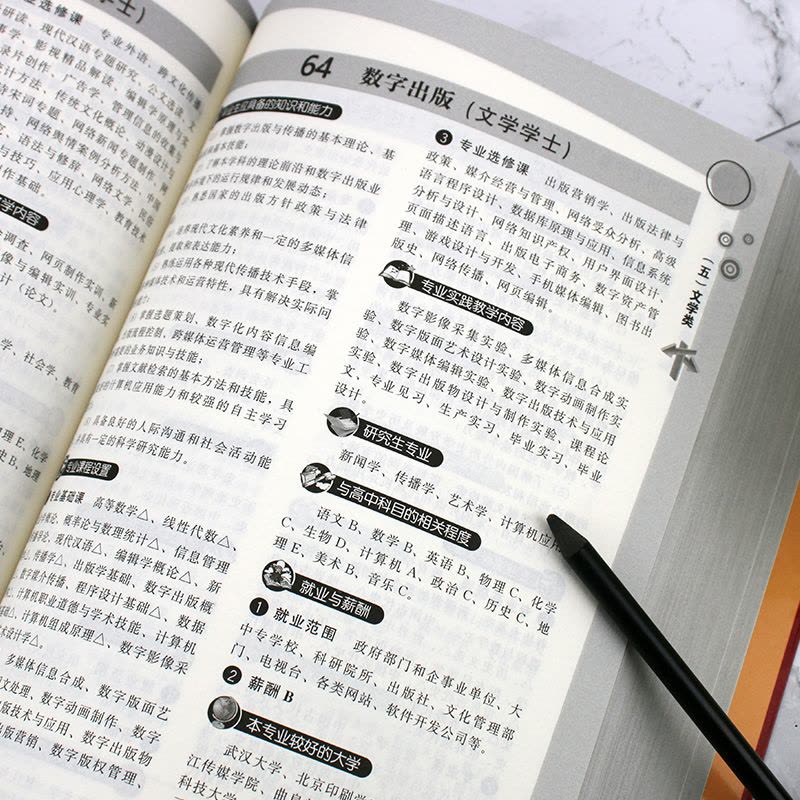 学士）
专业选修课 专业外语、跨文化传播
研读、现代汉语专题研究、公文选读、文
事学、影视精品解读、编辑学原理与实
录片创作、广告学、管理信息的收集与
设计方法、传统文化概论、动漫设计与
诗宋词专题、网络新闻专题制作、网
主持、网络舆情案例分析方法、中国
、语法与修辞、网络文学、民俗
与技巧、应用心理学、教育技术
作基础。
学内容
调查、网页制作实训、新
像与编辑实训、专业实
计（论文）。
学、社会学、教育
理 E、化学
史 B、地理
64 数字出版（文学学士）
业生应具备的知识和能力
掌握数字出版与传播的基本理论、基
本技能；
了解本学科的理论前沿和数字出版业
环境下的运行规律和发展动态；
熟悉国家的出版方针政策与法律
培养现代文化素养和一定的多媒体信
提取和表达能力；
熟练运用各种现代传播技术手段，掌
媒体技术和运营特性，具有解决实际问
掌握选题策划、数字化内容信息编
与流程控制、跨媒体运营管理等专业工
需要的业务知识与技能；
掌握文献检索的基本方法和技能，具
的计算机应用能力和较强的自主学习
具备良好的人际沟通和社会活动能
具有一定的科学研究能力。
专业课程设置
专业基础课 高等数学△、线性代数△、
概率论与数理统计△、信息管理
论、现代汉语△、编辑学概论△、新
传播学△、出版学基础、数字出版概
数字媒介传播、程序设计基础△、数据
计算机职业道德与学术技能、计算机
计算机组成原理△、数字影像采
术设计学△。
多媒体信息合成、数字版面艺
图文处理、数字动画制作、数字
版技术与应用、数字出版物
出版营销、数字版权管理、
❸ 专业选修课 出版营销学、出版法律与
政策、媒介经营与管理、网络受众分析、高级
语言程序设计、数据库原理与应用、信息系统
分析与设计、网络知识产权、用户界面设计、
页面描述语言、出版电子商务、数字资产管
理、游戏设计与开发、手机媒体编辑、图书出
版史、网络传播、网页编辑。
专业实践教学内容
数字影像采集实验、多媒体信息合成实
验、数字版面艺术设计实验、数字动画制作实
验、数字媒体编辑实验、数字出版技术与应用
实验、数字出版物设计与制作实验、课程论
文、专业见习、生产实习、毕业实习、毕业
设计。
研究生专业
新闻学、传播学、艺术学、计算机应用
与高中科目的相关程度
语文 B、数学 B、英语 B、物理 C、化学
C、生物 D、计算机 A、政治 C、历史 C、地
理 E、美术 B、音乐 C。
就业与薪酬
❶ 就业范围 政府部门和企事业单位、大
中专学校、科研院所、出版社、文化管理部
门、电视台、各类网站、软件开发公司等。
❷ 薪酬 B
本专业较好的大学
武汉大学、北京印刷学
江传媒学院、曲阜
科技大学
（五）文学类